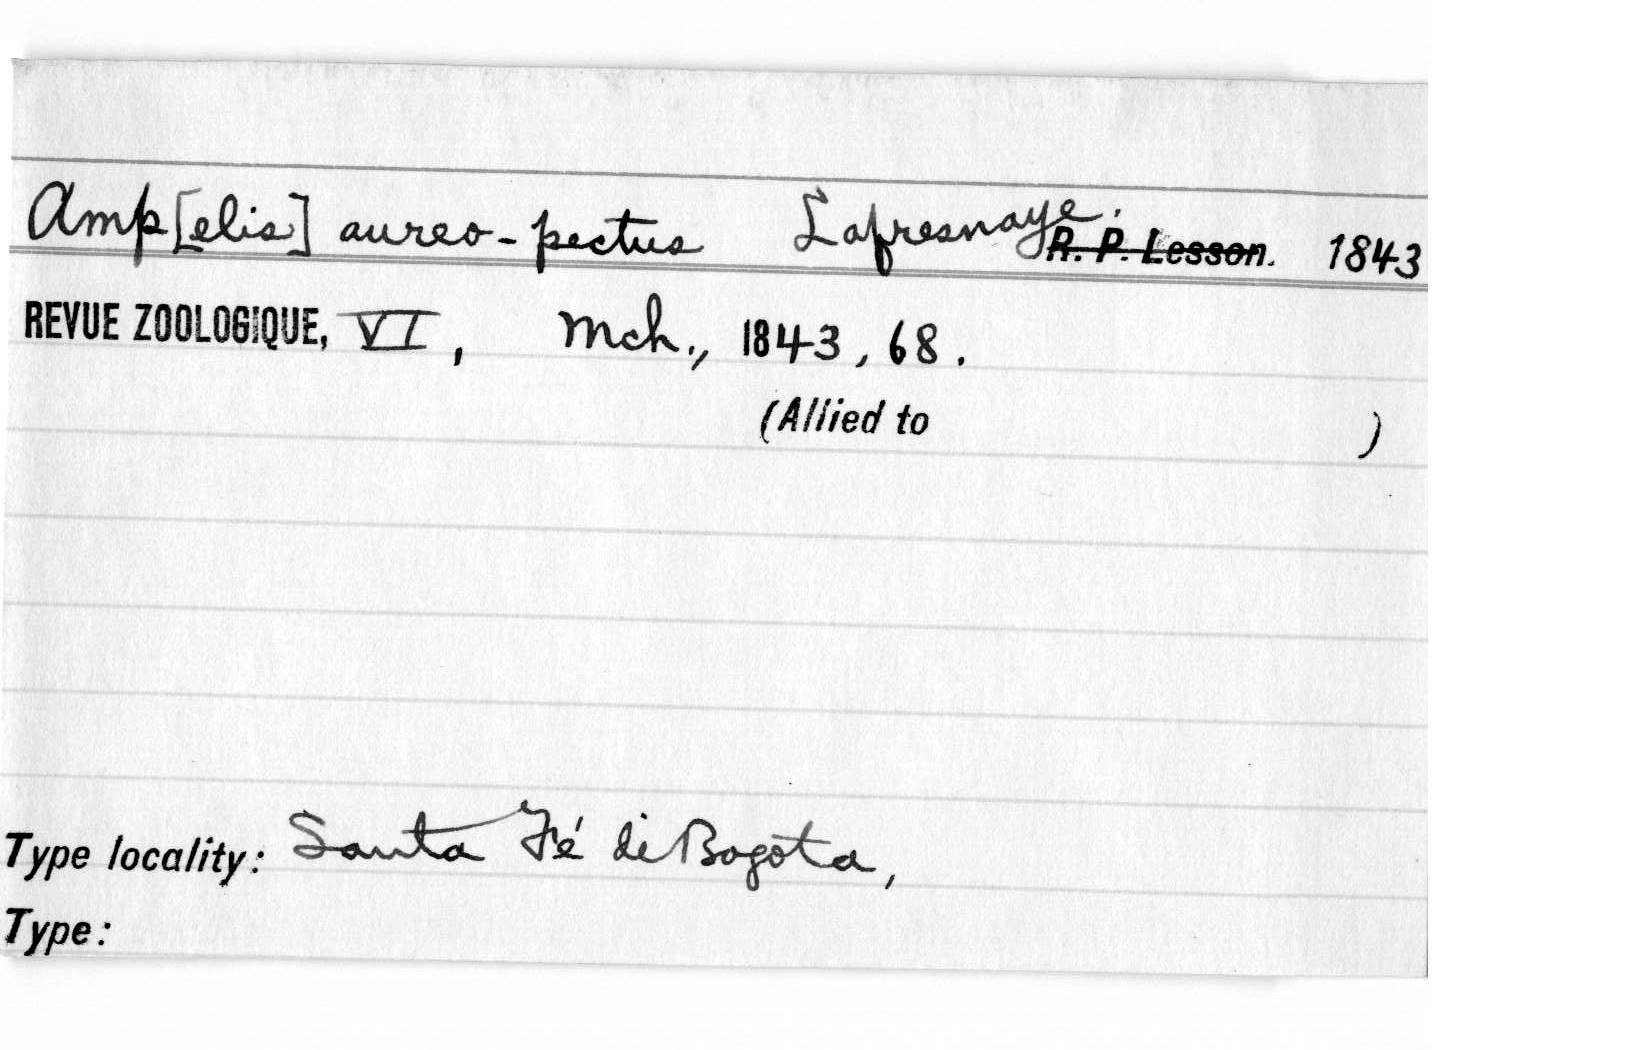 Amp[elis] aureo-pectus Lafresnaye. R. P. Lesson. 1843
REVUE ZOOLOGIQUE, VI, Mch., 1843, 68.
(Allied to )
Type locality: Santa Fé di Bogota,
Type: